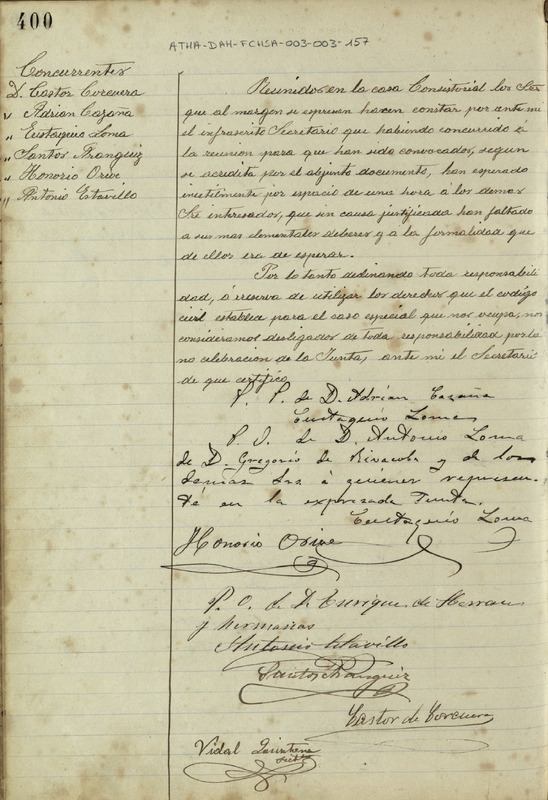 400
ATHA-DAH-FCHSA-003-003-157
Concurrentes
D. Castor Corcuera
" Adrian Cazaña
" Eustaquio Loma
" Santos Aranguiz
" Honorio Orive
" Antonio Estavillo
Reunidos en la casa Consistorial los Sres
que al margen se espresan hacen constar por ante mi
el infrascrito Secretario que habiendo concurrido á
la reunion para que han sido convocados, segun
se acredita por el adjunto documento, han esperado
inutilmente por espacio de una hora á los demas
Sres interesados, que sin causa justificada han faltado
a sus mas elementales deberes y a la formalidad que
de ellos era de esperar.
Por lo tanto declinando toda responsabili
dad, á reserva de utilizar los derechos que el codigo
civil establece para el caso especial que nos ocupa, nos
consideramos desligados de toda responsabilidad por la
no celebracion de la Junta, ante mi el Secretario
de que certifico.
P. P. de D. Adrian Cazaña
Eustaquio Loma
P. O. de D. Antonio Loma
de D. Gregorio de Rivacoba y de los
demas Srs. á quienes represen-
té en la expresada Junta.
Eustaquio Loma
Honorio Orive
P. O. de D. Enrique de Herran
y hermanas
Antonio Estavillo
Santos Aranguiz
Castor de Corcuera
Vidal Quintana